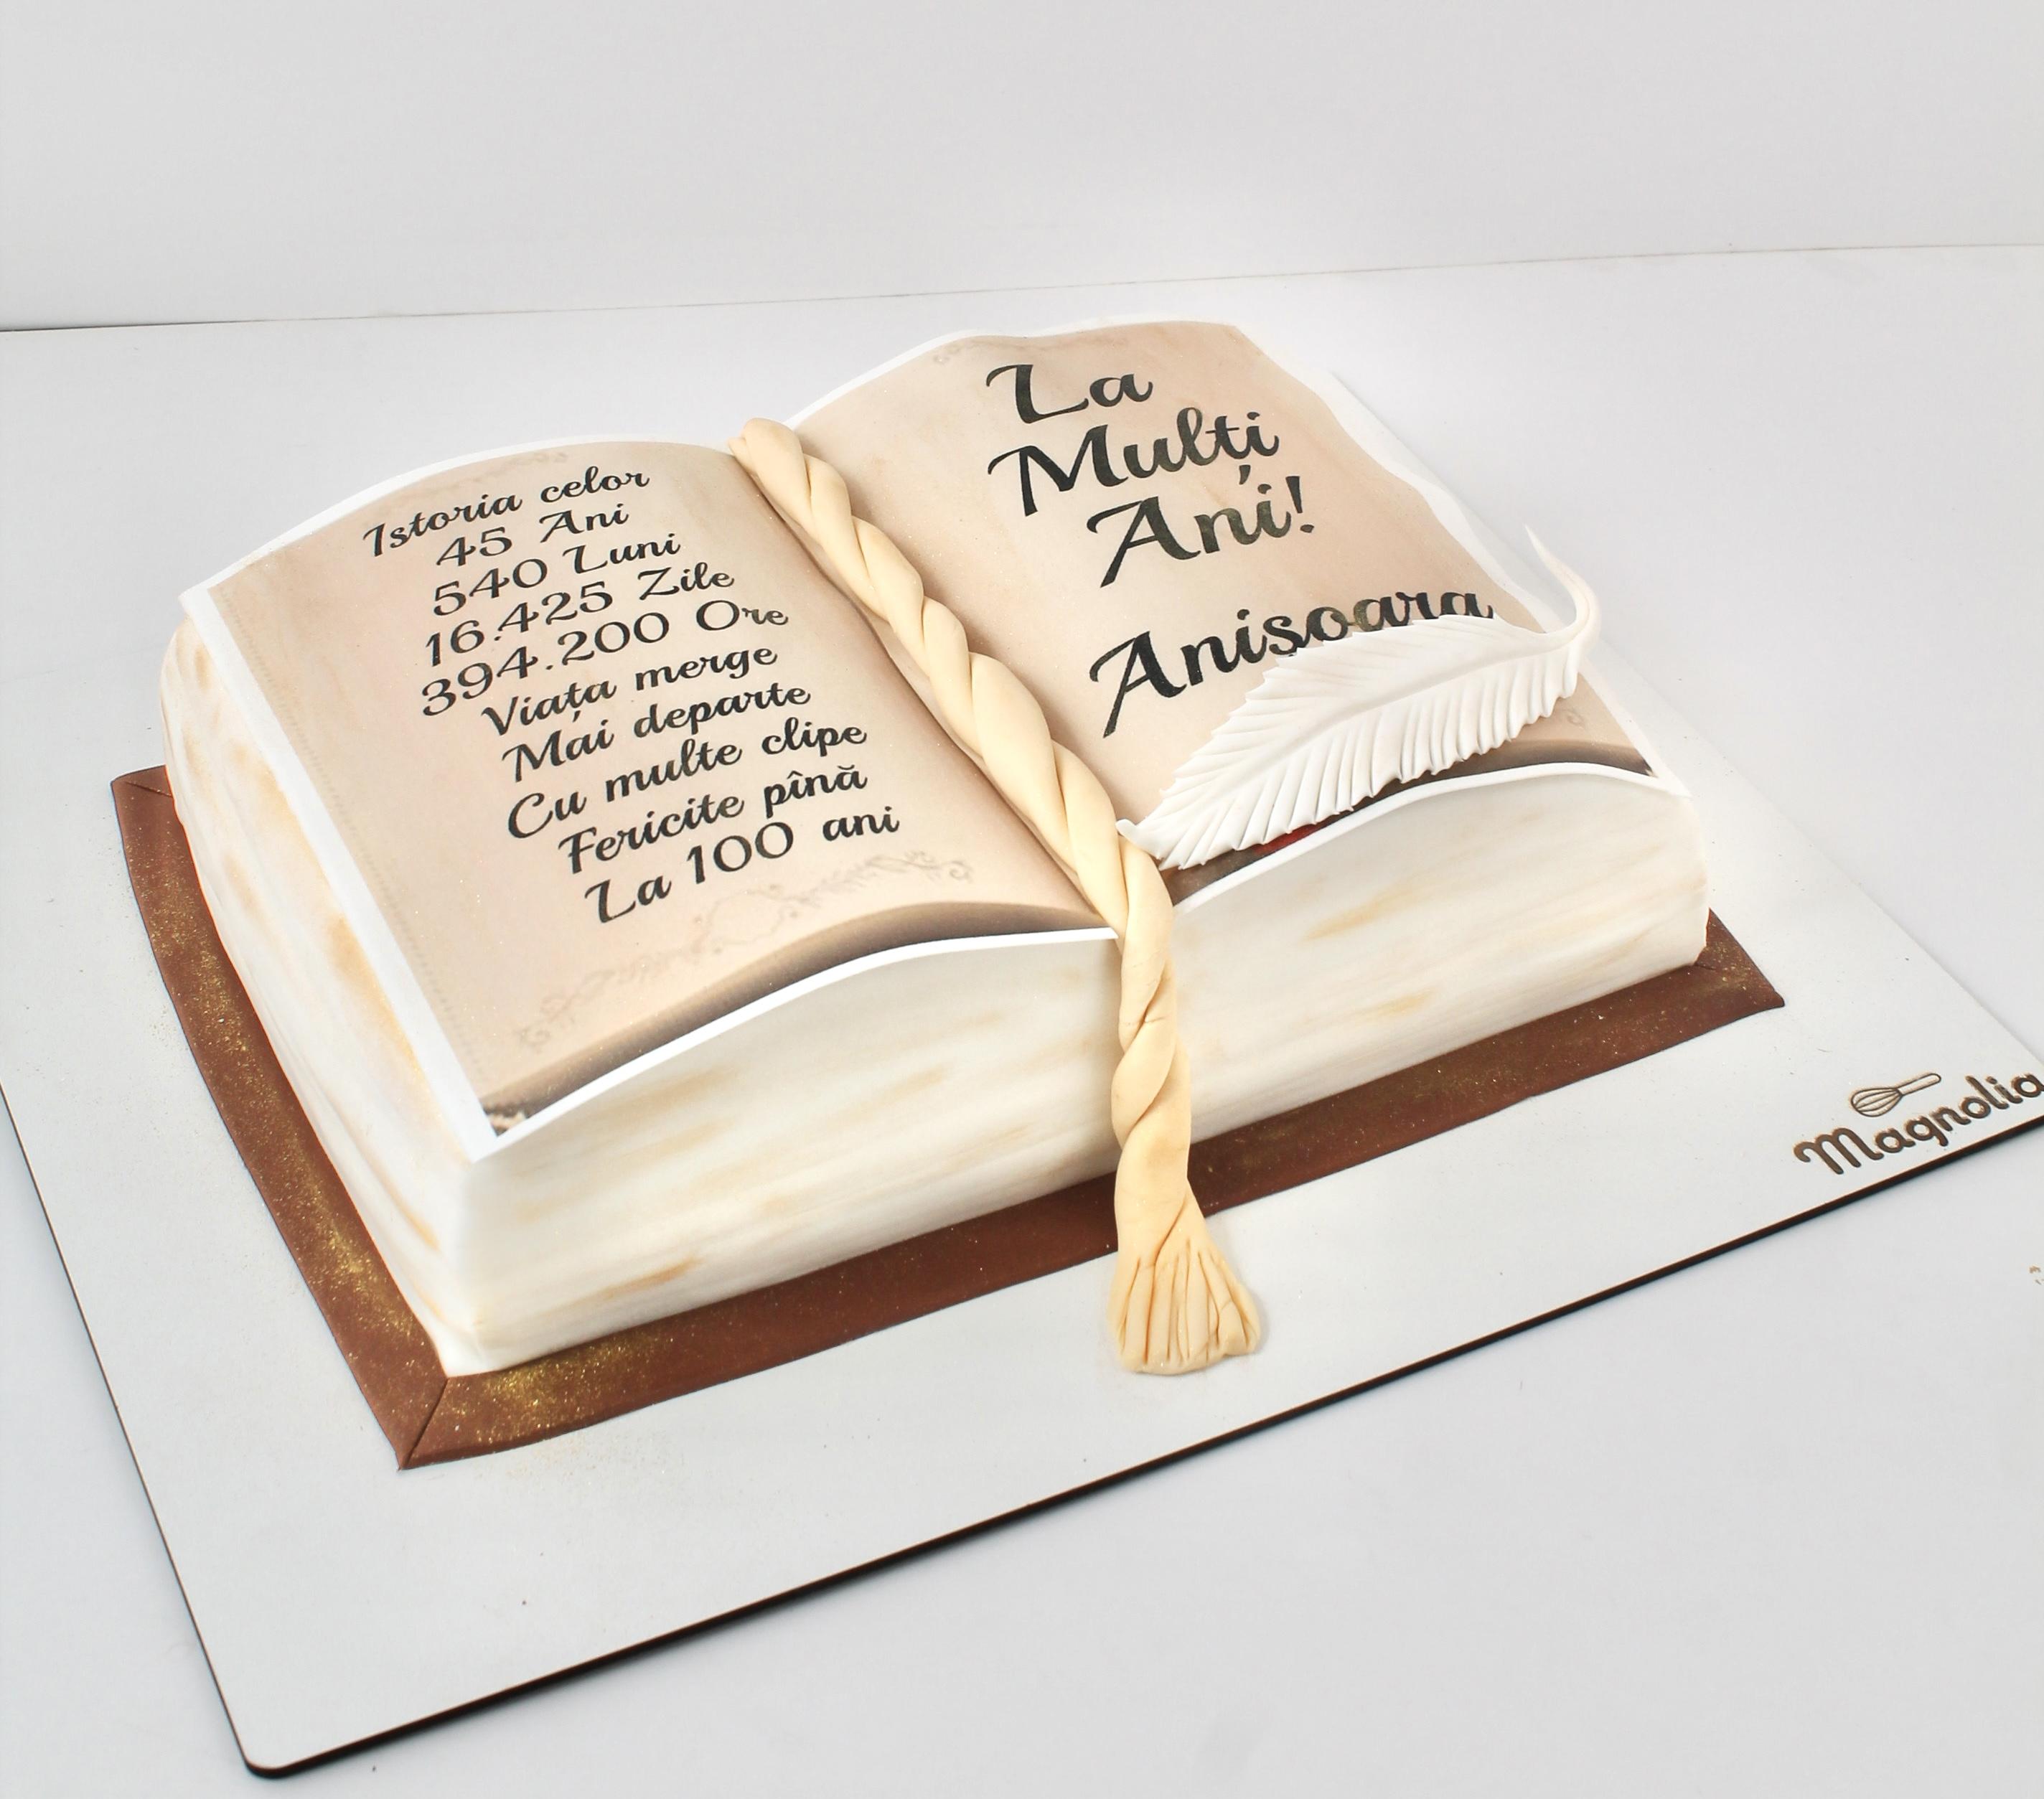 Istoria celor
45 Ani
540 Luni
16.425 Zile
394.200 Ore
Viața merge
Mai departe
Cu multe clipe
Fericite pînă
La 100 ani
La
Mulți
Ani!
Anisoara
Magnolia